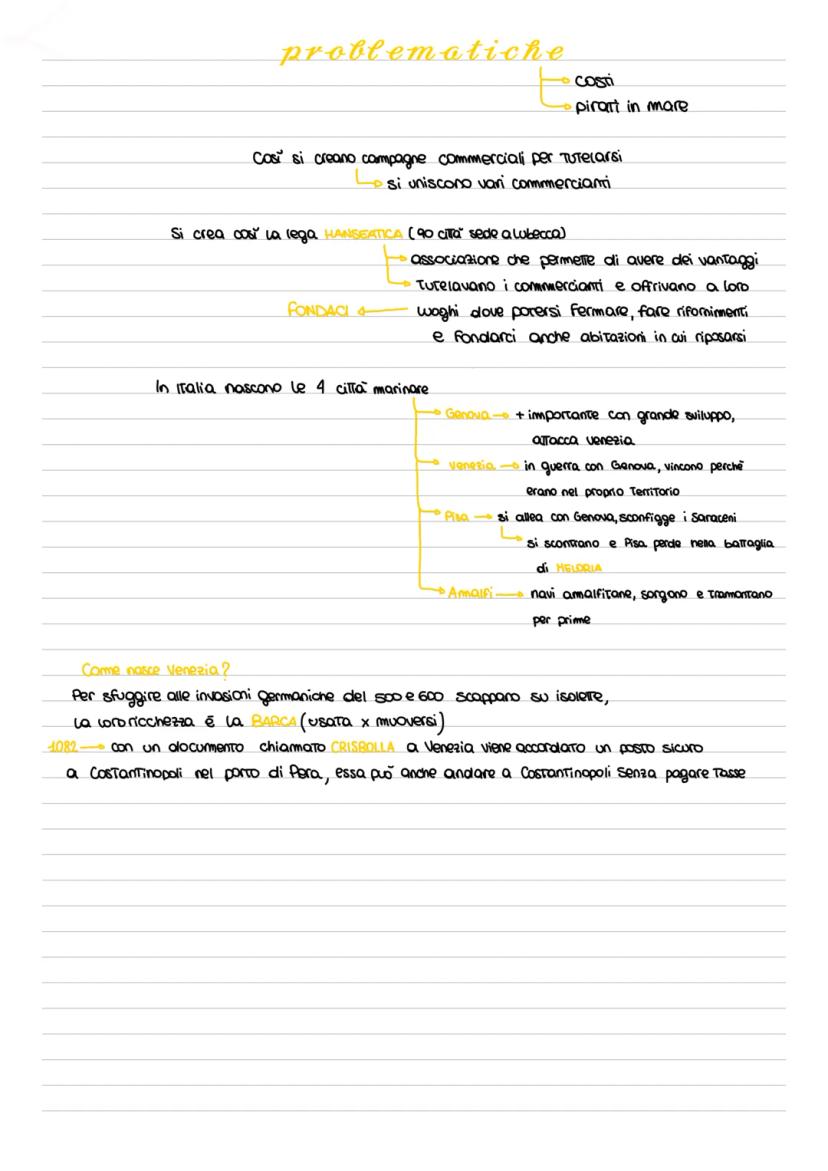 problematiche
costi
pirati in mare
Così si creano campagne commerciali per tutelarsi
si uniscono vari commercianti
Si crea così la lega HANSEATICA (90 città sede a lubecca)
associazione che permette di avere dei vantaggi
tutelavano i commercianti e offrivano a loro
FONDACI luoghi dove potersi fermare, fare rifornimenti
e fondarci anche abitazioni in cui riposarsi
In Italia nascono le 4 città marinare
Genova → + importante con grande sviluppo,
attacca venezia
venezia → in guerra con Genova, vincono perchè
erano nel proprio territorio
Pisa → si allea con Genova, sconfigge i Saraceni
si scontrano e Pisa perde nella battaglia
di MELORIA
Amalfi → navi amalfitane, sorgono e tramontano
per prime
Come nasce Venezia?
Per sfuggire alle invasioni germaniche del 500 e 600 scappano su isolette,
la loro ricchezza è la BARCA (usata x muoversi)
1082 → con un documento chiamato CRISBOLLA a Venezia viene accordato un posto sicuro
a Costantinopoli nel porto di Pera, essa può anche andare a Costantinopoli senza pagare tasse